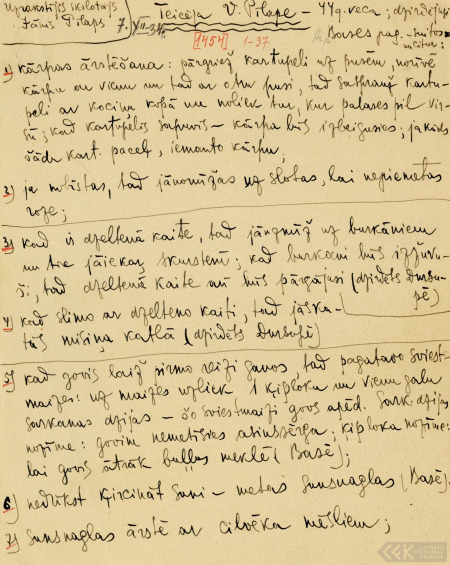 Uzrakstījis skolotājs
Jānis Pilaps
7. VII-34.
Teicēja V. Pilape - 44 g. veca; dzirdējusi
Bārbeles pag.
1454 1-37
1) kārpas ārstēšana: pārgriež kartupeli uz pusēm, norīvē
kārpu ar vienu un tad ar otru pusi, tad satprauž kartu-
peli ar kociņu kopā un noliek tur, kur palāses pil vir-
sū; kad kartupelis sapuvis - kārpa būs izbeigusies; ja kāds
šādu kart. paceļ, iemanto kārpu;
2) ja nokāstas, tad jānomīžas uz slotas, lai nepiemetas
roze;
3) kad ir dzeltenā kaite, tad jāizmīž uz burkāniem
un tie jāiekar skurstenī; kad burkāni būs izžuvu-
ši, tad dzeltenā kaite arī būs pārgājusi (dzirdēts Durbu-
pē)
4) kad slimo ar dzelteno kaiti, tad jāska-
tās misiņa katlā (dzirdēts Durbupē)
5) kad govis laiž pirmo reizi ganos, tad pagatavo sviest-
maizes: uz maizes uzliek 1 ķiploku un vienu galu
sarkanas dzijas - šo sviestmaizi govs apēd. Sark. dzijas
nozīme: govīm nemetīsies asinssērga; ķiploka nozīme:
lai govis ātrāk buļļus meklē (Basē);
6) nedrīkst ķircināt suni - metas sunsnaglas (Basē).
7) sunsnaglas ārstē ar cilvēka mēsliem;